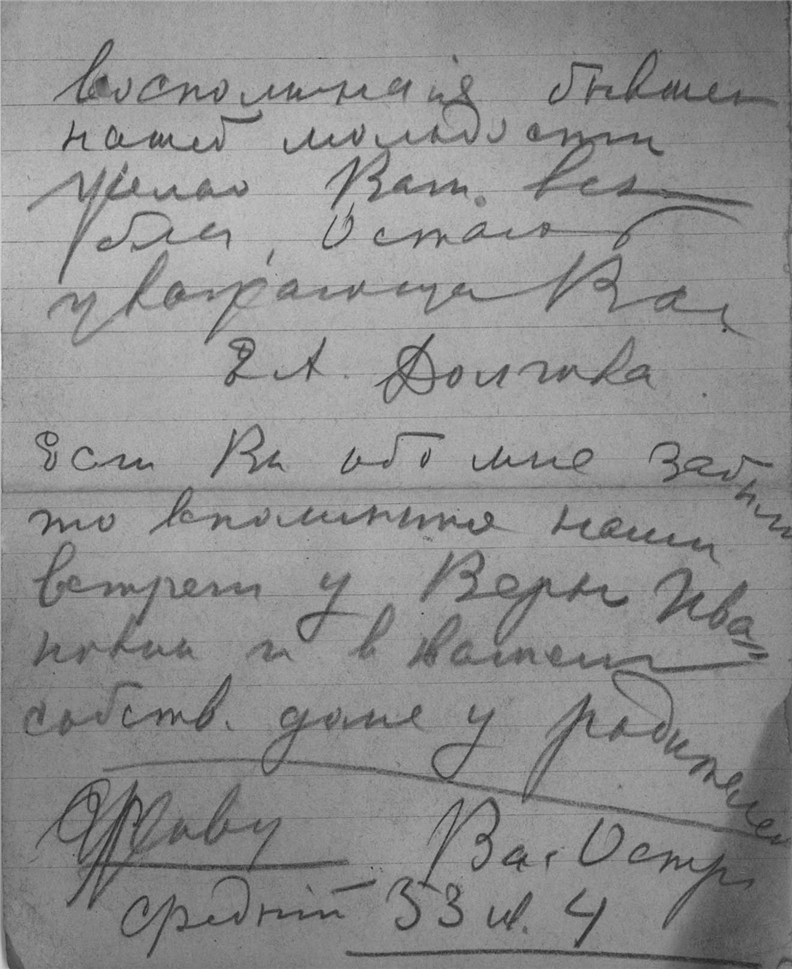 воспоминанія бывшей
нашей молодости
желаю Вам. всех
благ, Остаюсь
уважающая Вас
Е А. Долгова
Если Вы обо мне забыли
то вспомните наши
встречи у Веры Ива=
новны и в нашем
собств. доме у родителей
Живу Вас. Остр.
Средній 33 к. 4